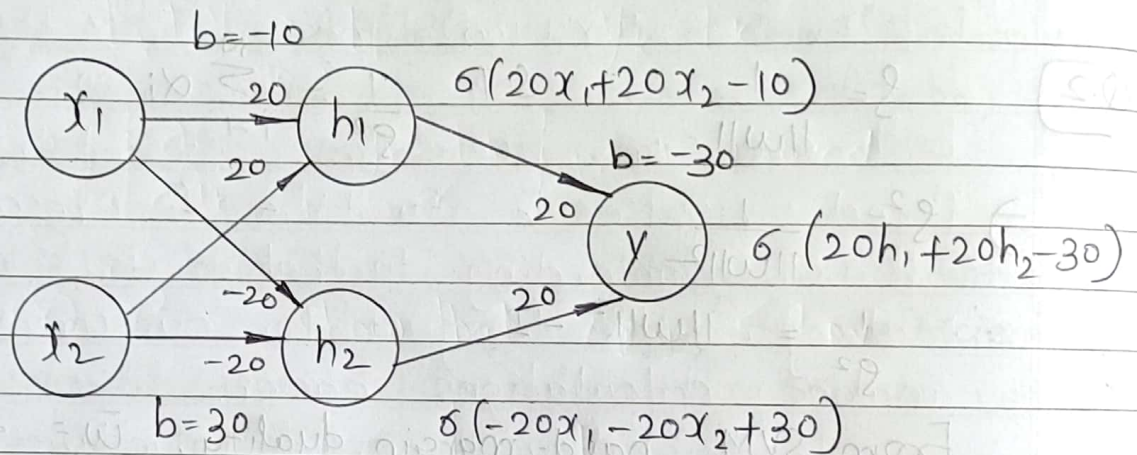 b=-10
x₁ 20 h₁ σ(20x₁+20x₂-10)
20 b=-30
20 y σ(20h₁+20h₂-30)
-20 20
x₂ -20 h₂
b=30 σ(-20x₁-20x₂+30)